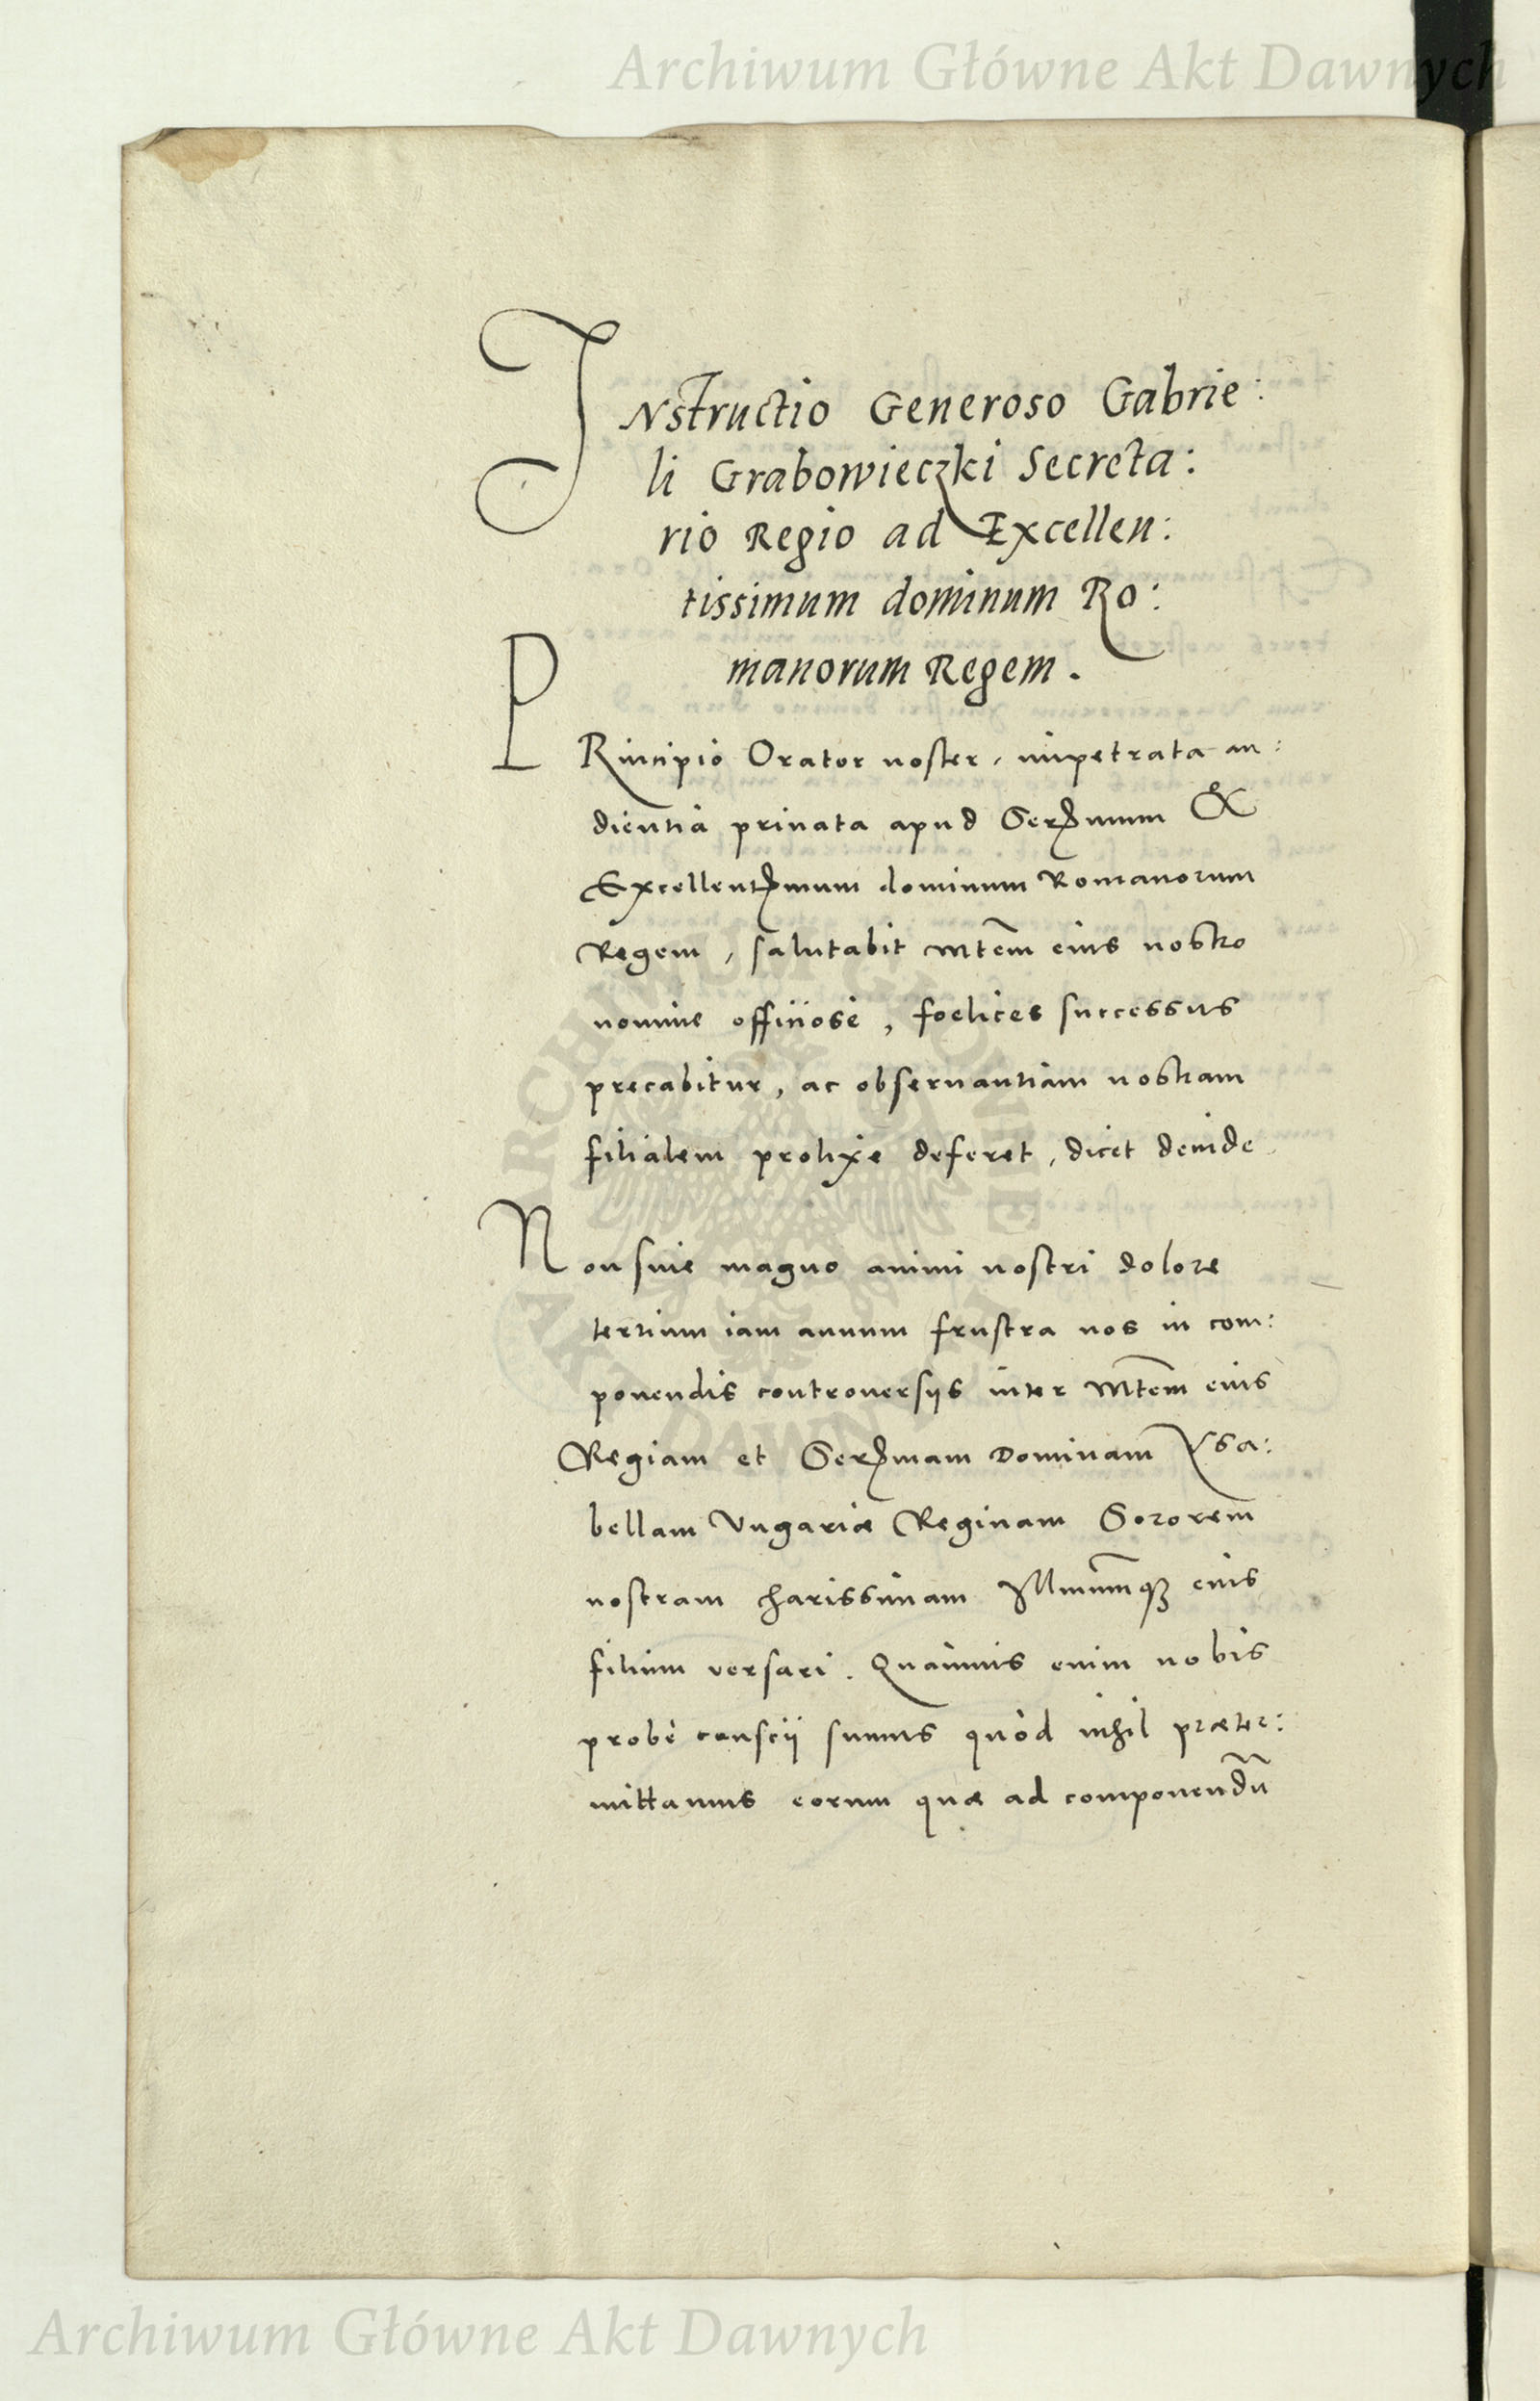 Archiwum Główne Akt Dawnych
INstructio Generoso Gabrie:
li Grabowieczki Secreta:
rio Regio ad Excellen:
tissimum dominum Ro:
manorum Regem.
PRincipio Orator noster, impetrata au:
dientia priuata apud Sermum &
Excellentmum dominum Romanorum
Regem, salutabit Mtem eius nostro
nomine officiose, foelices successus
precabitur, ac obseruantiam nostram
filialem prolixe deferet, dicet deinde
Non sine magno animi nostri dolore
tertium iam annum frustra nos in com:
ponendis controuersijs inter Mtem eius
Regiam et Sermam Dominam Ysa:
bellam Vngariæ Reginam Sororem
nostram charissimam Illmumq3 eius
filium versari. Quamuis enim nobis
probè conscij sumus quòd nihil præter:
mittamus eorum quæ ad componendu
ARCHIWUM GŁÓWNE
AKT DAWNYCH
Archiwum Główne Akt Dawnych